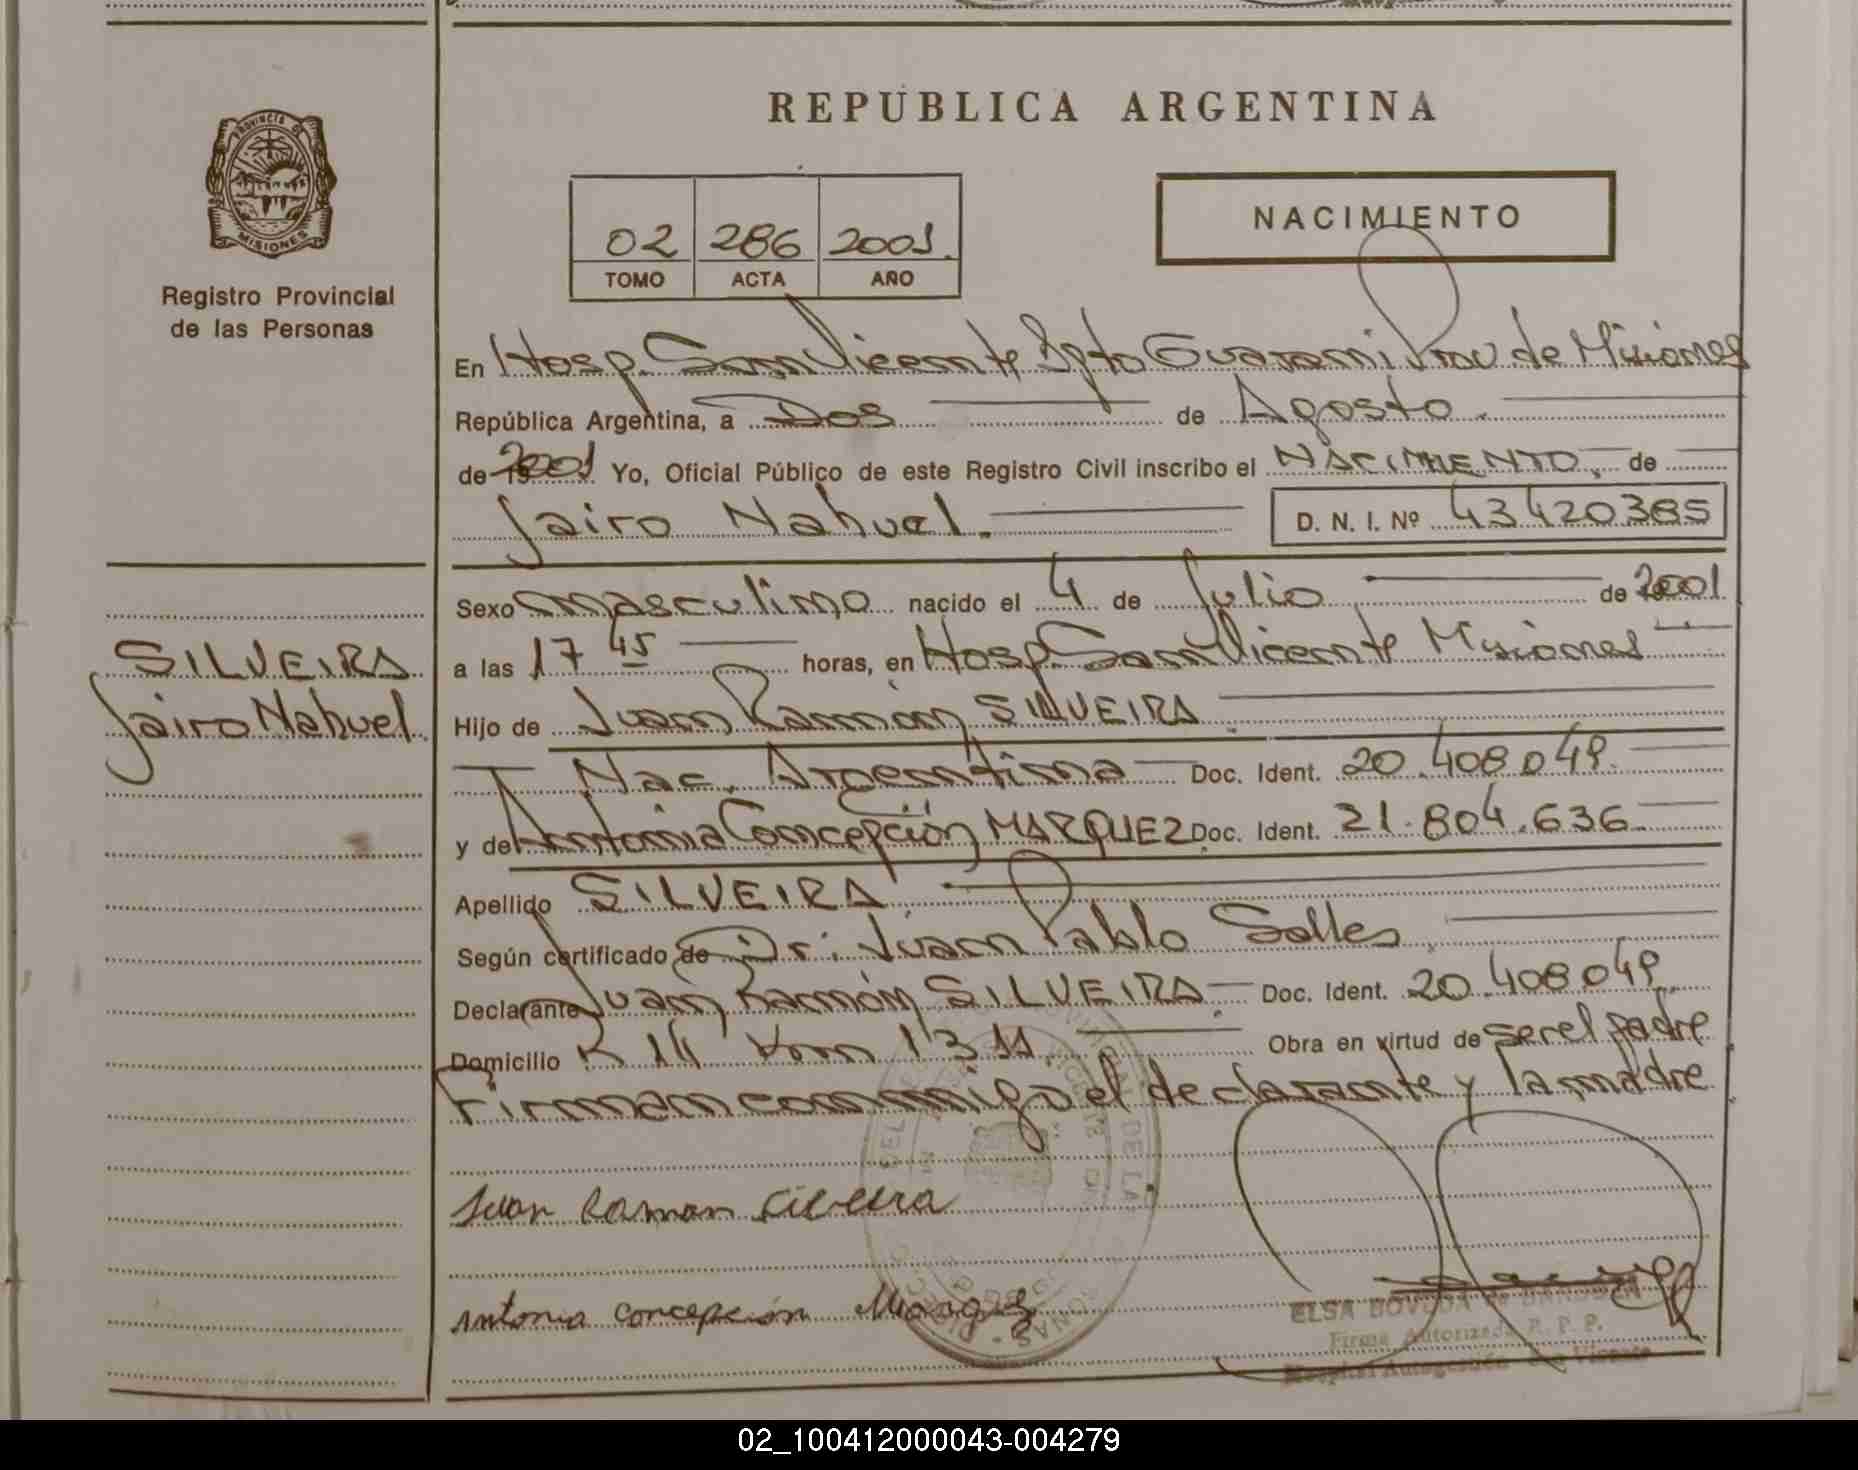 REPUBLICA ARGENTINA
PROVINCIA DE
MISIONES
Registro Provincial
de las Personas
02 286 2001.
TOMO ACTA AÑO
NACIMIENTO
En Hosp. San Vicente Dpto Guarani Prov. de Misiones
República Argentina, a Dos de Agosto.
de 2001 Yo, Oficial Público de este Registro Civil inscribo el NACIMIENTO, de
Jairo Nahuel. D. N. I. Nº 43420385
Sexo masculino nacido el 4 de Julio de 2001
a las 17 45 horas, en Hosp. San Vicente Misiones
SILVEIRA
Jairo Nahuel.
Hijo de Juan Ramón SILVEIRA
Nac. Argentina Doc. Ident. 20.408.049.
y de Antonia Concepción MARQUEZ Doc. Ident. 21.804.636
Apellido SILVEIRA
Según certificado de Dr. Juan Pablo Salles
Declarante Juan Ramón SILVEIRA Doc. Ident. 20.408.049
Domicilio Km 1311 Obra en virtud de ser el padre
Firman conmigo el declarante y la madre
Juan Ramon Silveira
Antonia Concepción Marquez
ELSA
Firma Autorizada R. P. P.
Hospital Autogestión San Vicente
02_100412000043-004279